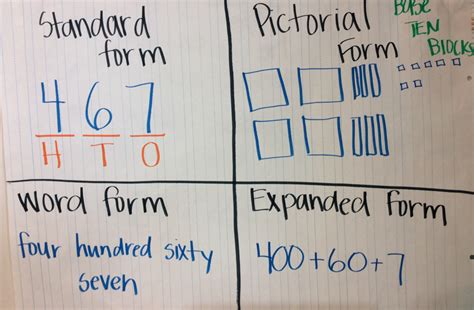 Standard
form
4 6 7
H T O
Pictorial
Form
BASE
TEN
BLOCKS
Word form
four hundred sixty
seven
Expanded form
400+60+7